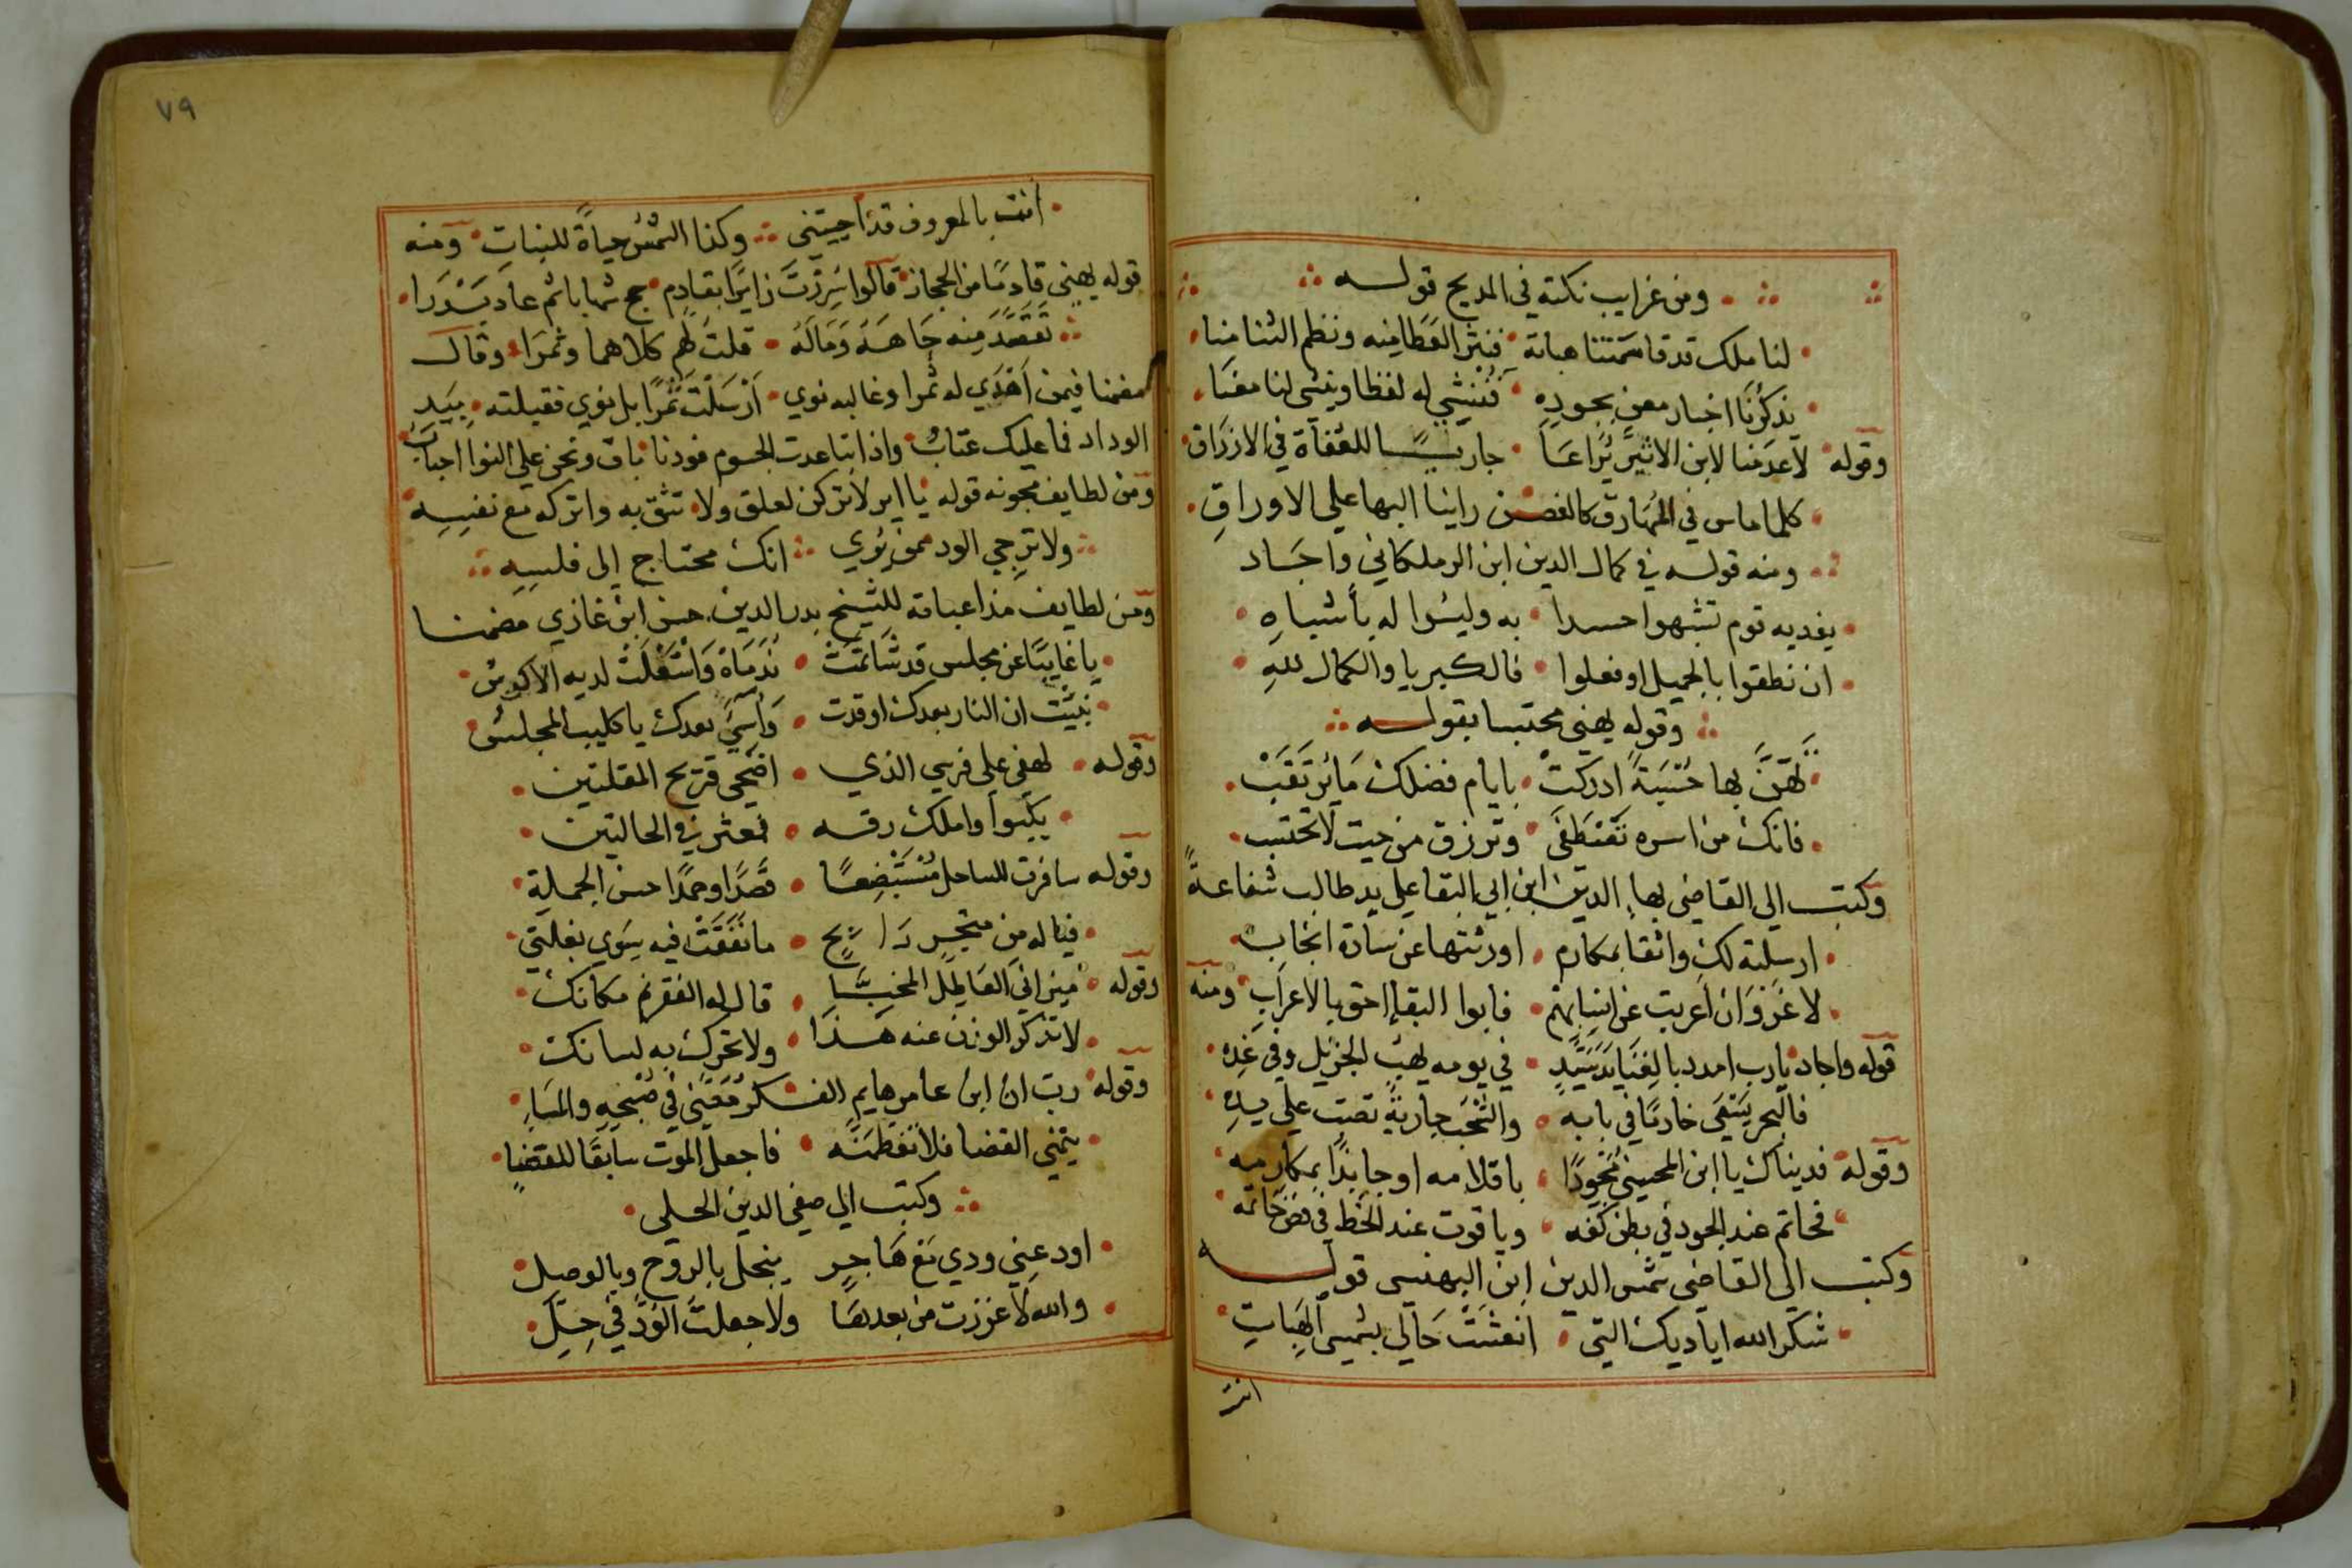 ومن غرايب نكته في المديح قوله
لنا ملك قد قاسمتنا هباته فنثر العطا منه ونظم الثنا منا
تذكرنا اخبار معن بجوده فننشي له لفظا وينشي لنا معنا
وقوله لا عدمنا لابن الاثير يراعا جاريا للعفاة في الارزاق
كلما ماس في المهارق كالغصن راينا البها علي الاوراق
ومنه قوله في كمال الدين ابن الزملكاني واجاد
يفديه قوم تشبهوا حسدا به وليسوا له باشباه
ان نطقوا بالجميل او فعلوا فالكبريا والكمال لله
وقوله يهني محتسبا بقوله
تهن بها حسبة ادركت بايام فضلك ما يرتقب
فانك من اسره تقتطفى وترزق من حيث لا تحتسب
وكتب الي القاضي بها الدين ابن ابي البقا علي يد طالب شفاعة
ارسلته لك واثقا بمكارم اورثتها عن سادة انجاب
لا غرو ان اعربت عن انبايهم فابوا البقا احق بالاعراب ومنه
قوله واجاد يارب امدد بالغنا يد سيد في يومه يهب الجزيل وفي غده
فالبحر يبتغي خادما في بابه والسحب جارية تصب علي يده
وقوله فديناك يا ابن المحسني مجودا باقلامه او جايدا بمكارمه
فحاتم عند الجود في بطن كفه وياقوت عند الخط في فص خاتمه
وكتب الي القاضي شمس الدين ابن البهنسي قوله
شكر الله اياديك التي انعشت حالي بشمس الهبات
انت
٧٩
انت بالمعروف قد احييتني وكذا الشمس حياة للنبات ومنه
قوله يهني قادما من الحجاز قالوا سررت زايرا بقادم حج شهابا ثم عاد بدرا
تقصد منه جاهه وماله قلت لهم كلاهما وتمرا وقال
مضمنا فيمن اهدي له تمرا وغالبه نوي ارسلت تمرا بل نوي فقبلته بيد
الوداد فما عليك عتاب واذا تباعدت الجسوم فودنا باق ونحن علي النوا احباب
ومن لطايف مجونه قوله يا اير لا تركن لعلق ولا تثق به واتركه مع نفسه
ولا ترجي الود ممن يري انك محتاج الي فلسه
ومن لطايف مداعباته للشيخ بدر الدين حسن ابن غازي مضمنا
يا غايبا عن مجلس قد شاتمت ندماه واشتغلت لديه الاكوس
نبيت ان النار بعدك اوقدت واستب بعدك يا كليب المجلس
وقوله لهفي علي فرسي الذي اضحي قريح المقلتين
يكبوا واملك رقه فمعثر في الحالتين
وقوله سافرت للساحل مستبضعا قصدا وحمدا حسن الجملة
فياله من متجر رابح ما نفقت فيه سوي بغلتي
وقوله ميزاني العاطل المخبا قال له الفقر نم مكانك
لا تذكر الوزن عنه هذا ولا تحرك به لسانك
وقوله رب ان ابن عامر هايم الفكر معني في صبحه والمساء
يتمني القضا فلا نقطمنه فاجعل الموت سابقا للقضا
وكتب الي صفي الدين الحلي
اودعني ودي مع هاجر يبخل بالروح وبالوصل
والله لا عززت من بعدها ولا جعلت الود في حل